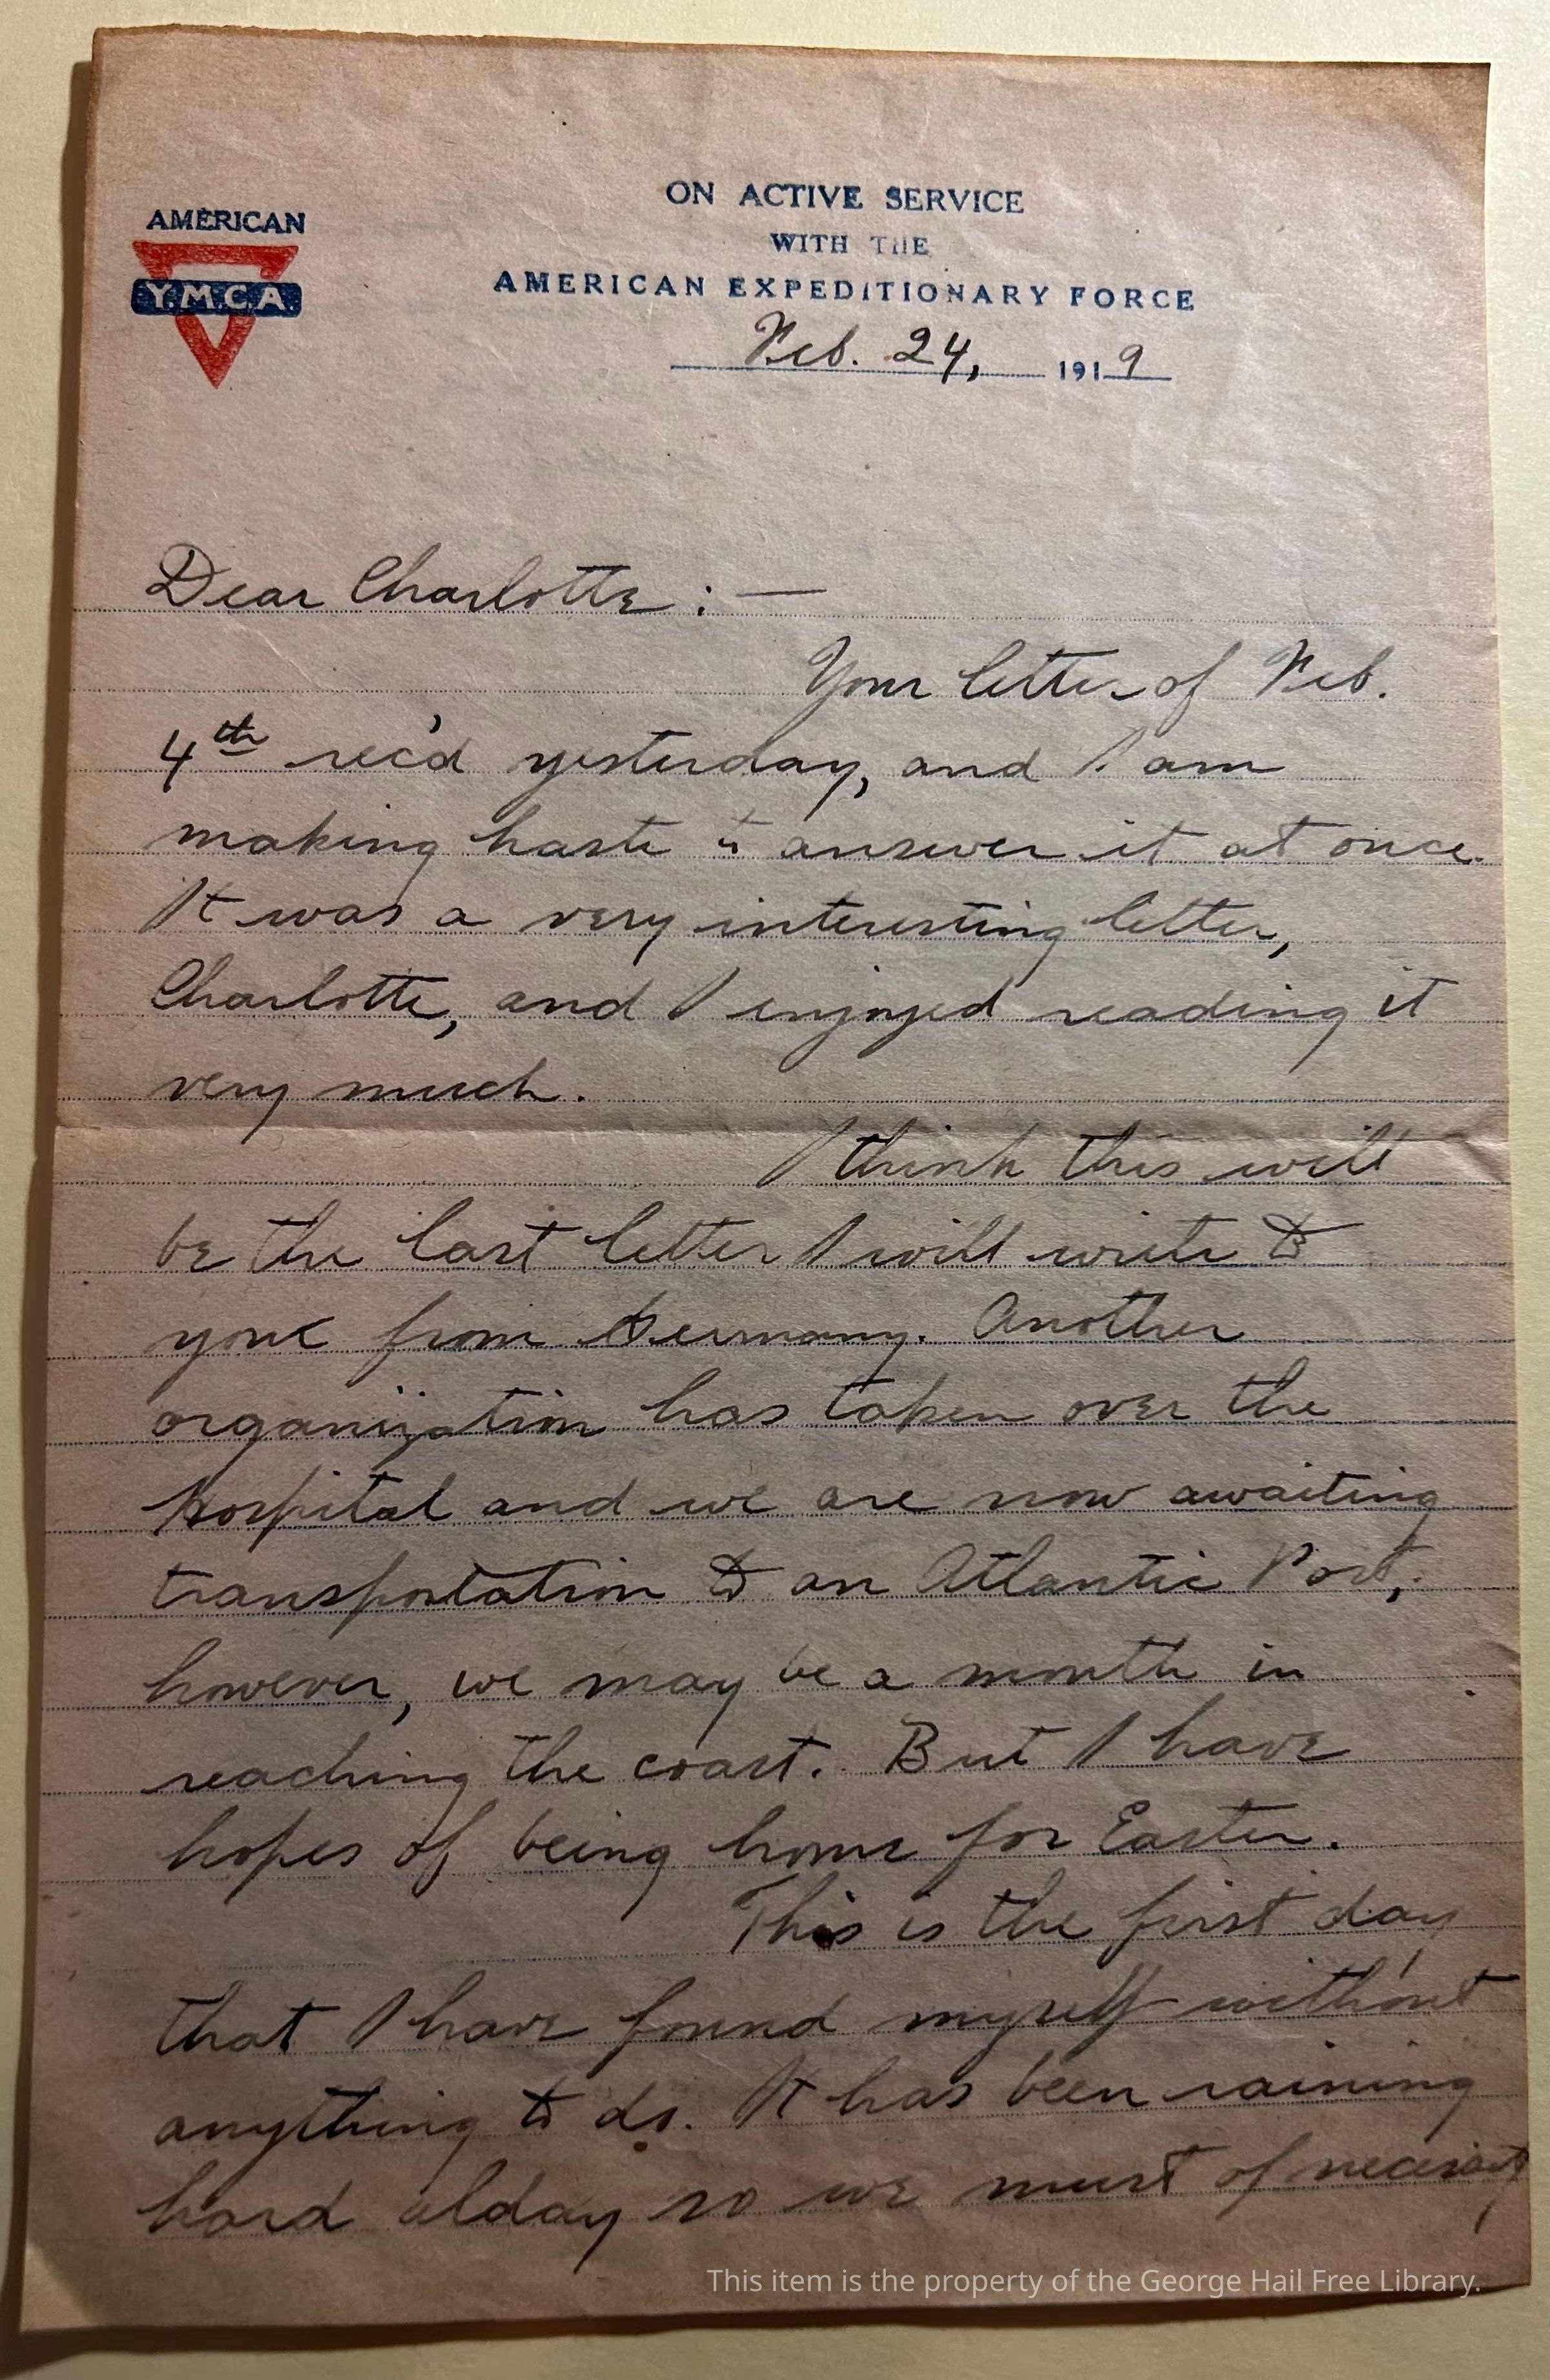 AMERICAN
Y.M.C.A
ON ACTIVE SERVICE
WITH THE
AMERICAN EXPEDITIONARY FORCE
Feb. 24, 1919
Dear Charlotte : —
Your letter of Feb.
4th rec'd yesterday, and I am
making haste to answer it at once.
It was a very interesting letter,
Charlotte, and I enjoyed reading it
very much.
I think this will
be the last letter I will write to
you from Germany. Another
organization has taken over the
hospital and we are now awaiting
transportation to an Atlantic Port,
however, we may be a month in
reaching the coast. But I have
hopes of being home for Easter.
This is the first day
that I have found myself without
anything to do. It has been raining
hard alday so we must of
This item is the property of the George Hail Free Library.